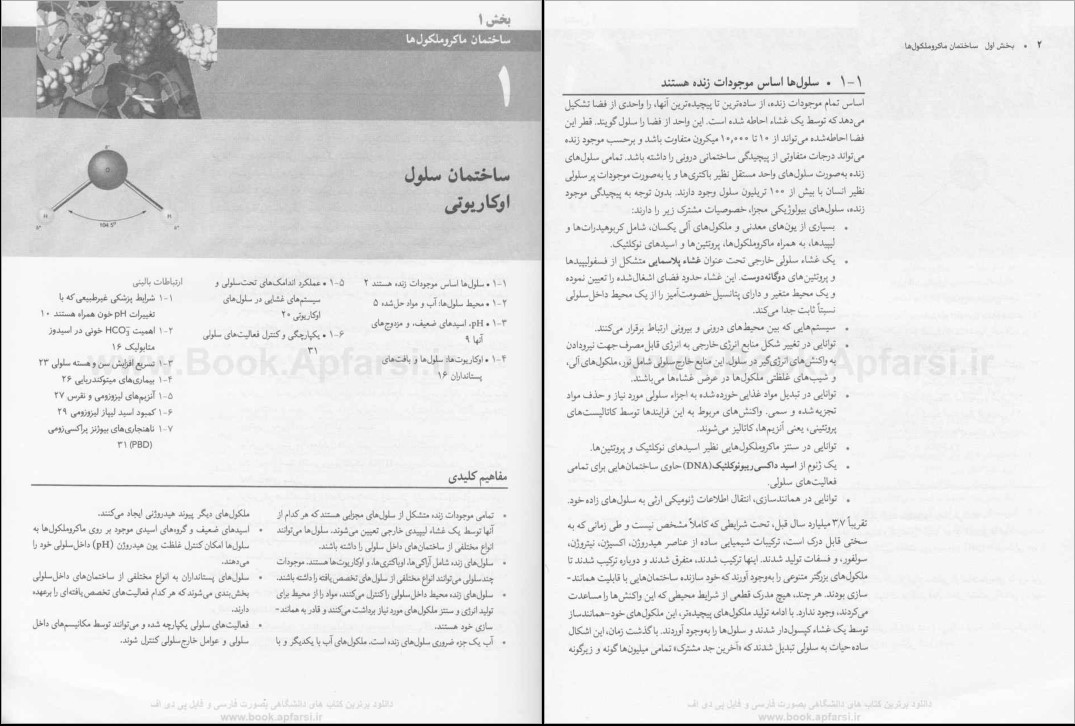 بخش ۱
ساختمان ماکروملکول‌ها
۱
ساختمان سلول
اوکاریوتی
104.5°
۱-۱ • سلول‌ها اساس موجودات زنده هستند ۲
۱-۲ • محیط سلول‌ها: آب و مواد حل‌شده ۵
۱-۳ • pH، اسیدهای ضعیف، و مزدوج‌های
آنها ۹
۱-۴ • اوکاریوت‌ها: سلول‌ها و بافت‌های
پستانداران ۱۶
۱-۵ • عملکرد اندامک‌های تحت‌سلولی و
سیستم‌های غشایی در سلول‌های
اوکاریوتی ۲۰
۱-۶ • یکپارچگی و کنترل فعالیت‌های سلولی
۳۱
ارتباطات بالینی
۱-۱ شرایط پزشکی غیرطبیعی که با
تغییرات pH خون همراه هستند ۱۰
۱-۲ اهمیت HCO₃⁻ خونی در اسیدوز
متابولیک ۱۶
۱-۳ تسریع افزایش سن و هسته سلولی ۲۳
۱-۴ بیماری‌های میتوکندریایی ۲۶
۱-۵ آنزیم‌های لیزوزومی و نقرس ۲۷
۱-۶ کمبود اسید لیپاز لیزوزومی ۲۹
۱-۷ ناهنجاری‌های بیوژنز پراکسی‌زومی
(PBD) ۳۱
مفاهیم کلیدی
• تمامی موجودات زنده متشکل از سلول‌های مجزایی هستند که هر کدام از
آنها توسط یک غشاء لیپیدی خارجی تعیین می‌شوند. سلول‌ها می‌توانند
انواع مختلفی از ساختمان‌های داخل سلولی را داشته باشند.
• سلول‌های زنده، شامل آراکی‌ها، اوباکتری‌ها، و اوکاریوت‌ها هستند. موجودات
چندسلولی می‌توانند انواع مختلفی از سلول‌های تخصص‌یافته را داشته باشند.
• سلول‌های زنده محیط داخل‌سلولی را کنترل می‌کنند، مواد را از محیط برای
تولید انرژی و سنتز ملکول‌های مورد نیاز برداشت می‌کنند و قادر به همانند-
سازی خود هستند.
• آب یک جزء ضروری سلول‌های زنده است. ملکول‌های آب با یکدیگر و با
ملکول‌های دیگر پیوند هیدروژنی ایجاد می‌کنند.
• اسیدهای ضعیف و گروه‌های اسیدی موجود بر روی ماکروملکول‌ها به
سلول‌ها امکان کنترل غلظت یون هیدروژن (pH) داخل‌سلولی خود را
می‌دهند.
• سلول‌های پستانداران به انواع مختلفی از ساختمان‌های داخل‌سلولی
بخش‌بندی می‌شوند که هر کدام فعالیت‌های تخصص‌یافته‌ای را برعهده
دارند.
• فعالیت‌های سلولی یکپارچه شده و می‌توانند توسط مکانیسم‌های داخل
سلولی و عوامل خارج‌سلولی کنترل شوند.
www.Book.Apfarsi.ir
دانلود برترین کتاب های دانشگاهی بصورت فارسی و فایل پی دی اف
www.book.apfarsi.ir
۲ • بخش اول ساختمان ماکروملکول‌ها
۱-۱ • سلول‌ها اساس موجودات زنده هستند
اساس تمام موجودات زنده، از ساده‌ترین تا پیچیده‌ترین آنها، را واحدی از فضا تشکیل
می‌دهد که توسط یک غشاء احاطه شده است. این واحد از فضا را سلول گویند. قطر این
فضا احاطه‌شده می‌تواند از ۱۰ تا ۱۰,۰۰۰ میکرون متفاوت باشد و برحسب موجود زنده
می‌تواند درجات متفاوتی از پیچیدگی ساختمانی درونی را داشته باشد. تمامی سلول‌های
زنده به‌صورت سلول‌های واحد مستقل نظیر باکتری‌ها و یا به‌صورت موجودات پر سلولی
نظیر انسان با بیش از ۱۰۰ تریلیون سلول وجود دارند. بدون توجه به پیچیدگی موجود
زنده، سلول‌های بیولوژیکی مجزا، خصوصیات مشترک زیر را دارند:
• بسیاری از یون‌های معدنی و ملکول‌های آلی یکسان، شامل کربوهیدرات‌ها و
لیپیدها، به همراه ماکروملکول‌ها، پروتئین‌ها و اسیدهای نوکلئیک.
• یک غشاء سلولی خارجی تحت عنوان غشاء پلاسمایی متشکل از فسفولیپیدها
و پروتئین‌های دوگانه‌دوست. این غشاء حدود فضای اشغال‌شده را تعیین نموده
و یک محیط متغیر و دارای پتانسیل خصومت‌آمیز را از یک محیط داخل سلولی
نسبتاً ثابت جدا می‌کند.
• سیستم‌هایی که بین محیط‌های درونی و بیرونی ارتباط برقرار می‌کنند.
• توانایی در تغییر شکل منابع انرژی خارجی به انرژی قابل‌مصرف جهت نیرودادن
به واکنش‌های انرژی‌گیر در سلول. این منابع خارج سلولی شامل نور، ملکول‌های آلی،
و شیب‌های غلظتی ملکول‌ها در عرض غشاءها می‌باشند.
• توانایی در تبدیل مواد غذایی خورده‌شده به اجزاء سلولی مورد نیاز و حذف مواد
تجزیه‌شده و سمی. واکنش‌های مربوط به این فرایندها توسط کاتالیست‌های
پروتئینی، یعنی آنزیم‌ها، کاتالیز می‌شوند.
• توانایی در سنتز ماکروملکول‌هایی نظیر اسیدهای نوکلئیک و پروتئین‌ها.
• یک ژنوم از اسید داکسی‌ریبونوکلئیک (DNA) حاوی ساختمان‌هایی برای تمامی
فعالیت‌های سلولی.
• توانایی در همانندسازی، انتقال اطلاعات ژنومیکی ارثی به سلول‌های زاده خود.
تقریباً ۳/۷ میلیارد سال قبل، تحت شرایطی که کاملاً مشخص نیست و طی زمانی که به
سختی قابل درک است، ترکیبات شیمیایی ساده از عناصر هیدروژن، اکسیژن، نیتروژن،
سولفور، و فسفات تولید شدند. اینها ترکیب شدند، متفرق شدند و دوباره ترکیب شدند تا
ملکول‌های بزرگتر متنوعی را به‌وجود آورند که خود سازنده ساختمان‌هایی با قابلیت همانند-
سازی بودند. هر چند، هیچ مدرک قطعی از شرایط محیطی که این واکنش‌ها را مساعدت
می‌کردند، وجود ندارد. با ادامه تولید ملکول‌های پیچیده‌تر، این ملکول‌های خود-همانندساز
توسط یک غشاء کپسول‌دار شدند و سلول‌ها را به‌وجود آوردند. با گذشت زمان، این اشکال
ساده حیات به سلولی تبدیل شدند که «آخرین جد مشترک» تمامی میلیون‌ها گونه و زیرگونه
www.Book.Apfarsi.ir
دانلود برترین کتاب های دانشگاهی بصورت فارسی و فایل پی دی اف
www.book.apfarsi.ir